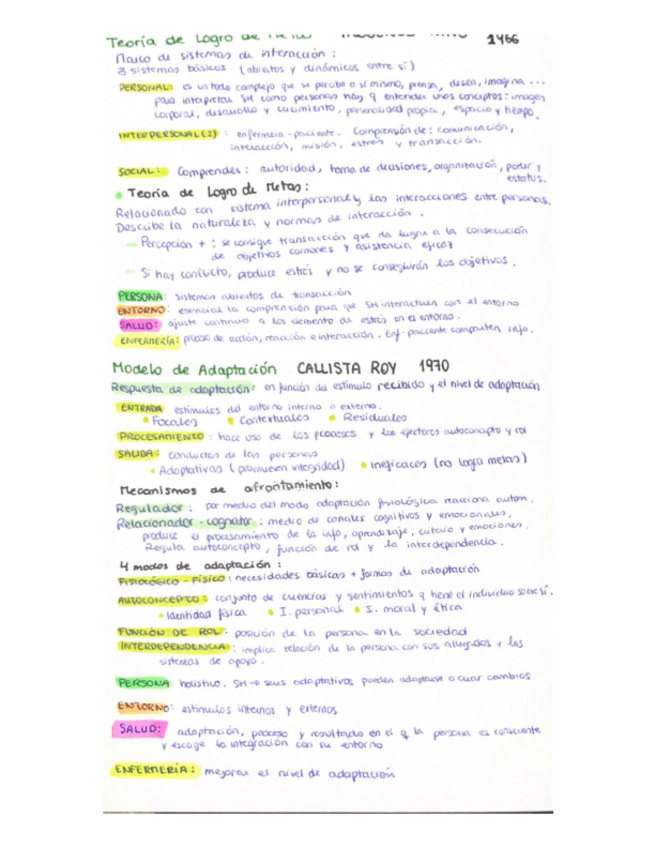 Teoría de Logro de Metas IMOGENES KING 1966
Marco de sistemas de interacción :
3 sistemas básicos (abiertos y dinámicos entre sí)
PERSONAL: es un todo complejo que se percibe a sí mismo, piensa, desea, imagina ...
para interpretar SH como personas hay q entender unos conceptos: imagen
corporal, desarrollo y crecimiento, personalidad propia, espacio y tiempo.
INTERPERSONAL (2) : enfermera - paciente. Comprensión de : comunicación,
interacción, misión, estrés y transacción.
SOCIAL : Comprendes : autoridad, toma de decisiones, organización, poder y
estatus.
Teoría de Logro de Metas :
Relacionado con sistema interpersonal y las interacciones entre personas.
Describe la naturaleza y normas de interacción .
Percepción + : se consigue transacción que da lugar a la consecución
de objetivos comunes y asistencia eficaz
Si hay conflicto, produce estrés y no se conseguirán los objetivos .
PERSONA: sistemas abiertos de transacción
ENTORNO: esencial la comprensión para que SH interactuen con el entorno
SALUD: ajuste continuo a los elemento de estrés en el entorno.
ENFERMERÍA: proceso de acción, reacción e interacción. Enf- paciente comparten info.
Modelo de Adaptación CALLISTA ROY 1970
Respuesta de adaptación: en función del estímulo recibido y el nivel de adaptación
ENTRADA estímulos del entorno interno o externo.
• Focales • Contextuales • Residuales
PROCESAMIENTO : hace uso de los procesos y los efectores autoconcepto y rol
SALIDA: conductas de las personas
• Adaptativas (promueven integridad) • ineficaces (no logra metas)
Mecanismos de afrontamiento :
Regulador : por medio del modo adaptación fisiológica reacciona autom.
Relacionador - cognator : medio de canales cognitivos y emocionales,
produce el procesamiento de la info, aprendizaje, cultura y emociones .
Regula autoconcepto, función de rol y la interdependencia.
4 modos de adaptación :
FISIOLÓGICO - FÍSICO : necesidades básicas + formas de adaptación
AUTOCONCEPTO : conjunto de creencias y sentimientos q tiene el individuo sobre sí.
• Identidad física • I. personal • I. moral y ética
FUNCIÓN DE ROL : posición de la persona en la sociedad
INTERDEPENDENCIA : implica relación de la persona con sus allegados y los
sistemas de apoyo .
PERSONA holístico. SH → seres adaptativos pueden adaptarse o crear cambios
ENTORNO: estímulos internos y externos
SALUD: adaptación, proceso y resultado en el q la persona es consciente
y escoge la integración con su entorno
ENFERMERÍA : mejorar el nivel de adaptación